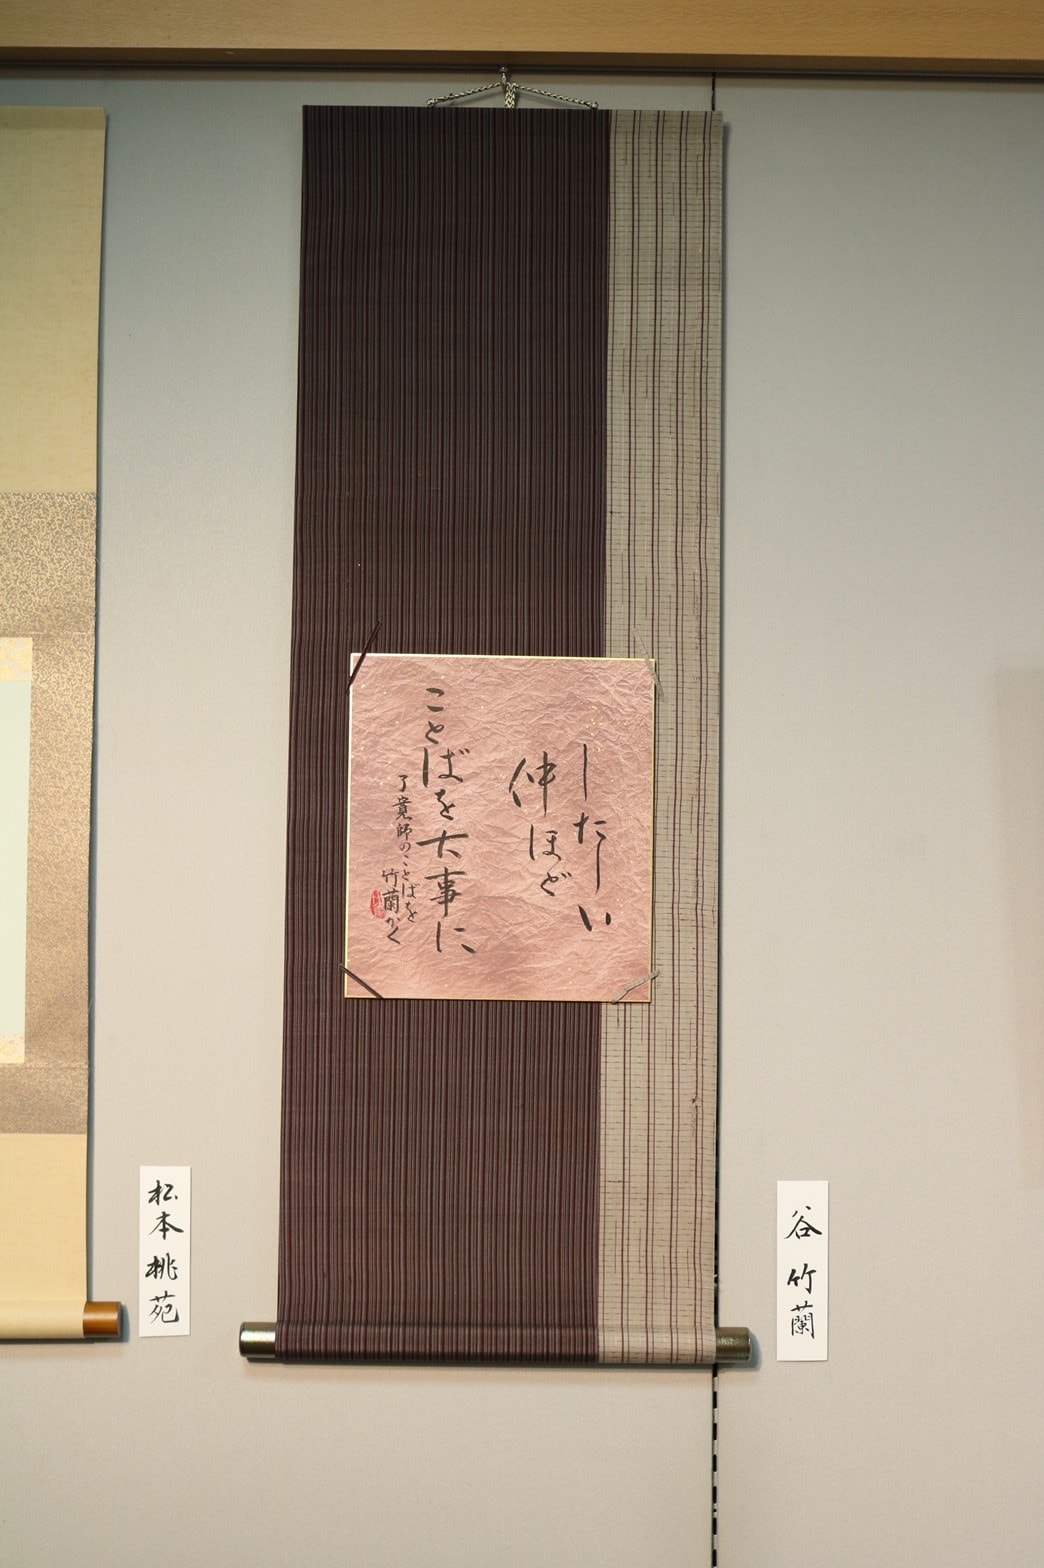 したしい
仲ほど
ことばを大事に
了意師のことばを
竹蘭かく
谷竹蘭
松本桃苑